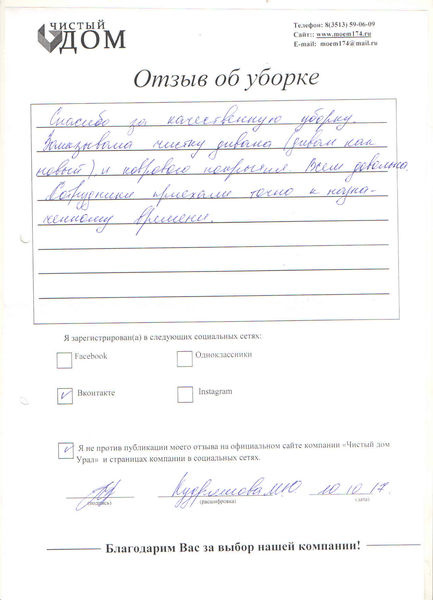 ЧИСТЫЙ
ДОМ
Телефон: 8(3513) 59-06-09
Сайт:: www.moem174.ru
E-mail: moem174@mail.ru
Отзыв об уборке
Спасибо за качественную уборку.
Заказывала чистку дивана (диван как
новый) и коврового покрытия. Всем довольна.
Сотрудники приехали точно к назна-
ченному времени.
Я зарегистрирован(а) в следующих социальных сетях:
Facebook
Одноклассники
Вконтакте
Instagram
Я не против публикации моего отзыва на официальном сайте компании «Чистый дом
Урал» и страницах компании в социальных сетях.
Кудряшова М.Ю. 10 10 17.
(подпись) (расшифровка) (дата)
Благодарим Вас за выбор нашей компании!